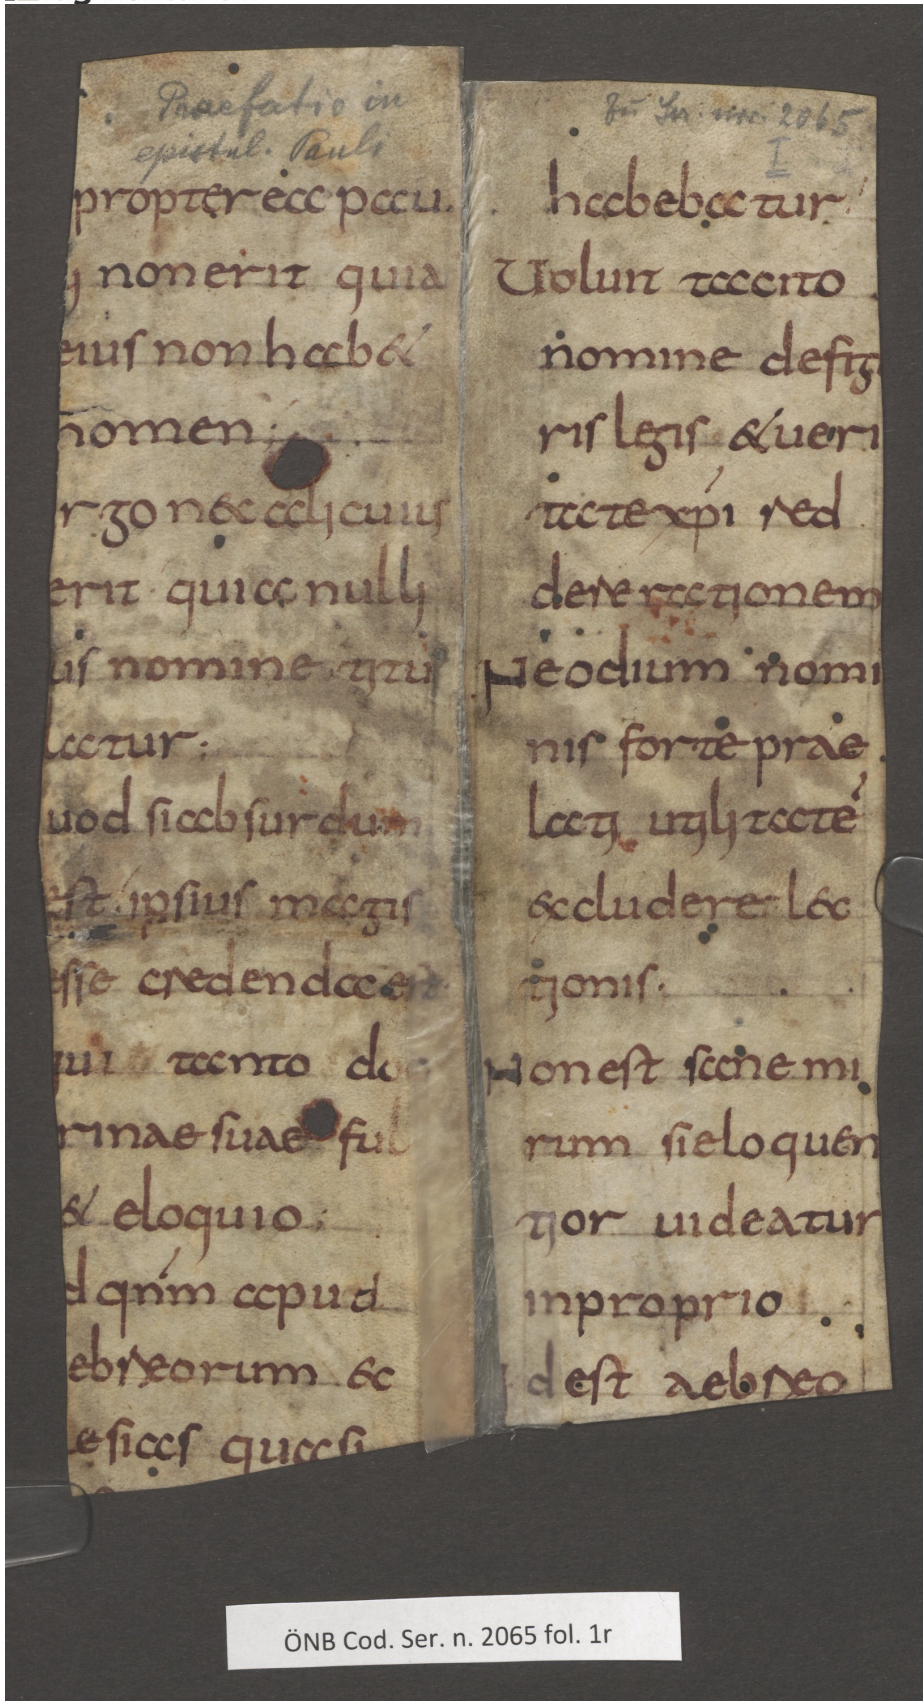 Praefatio in
epistul. Pauli
propterea pau
li non erit quia
eius non hab&
nomen;
rgo nec alicuius
erit quia nulli
us nomine titu
latur;
uod si absurdum
est ipsius magis
esse credenda est
qui tanto doc
rinae suae ful
& eloquio;
d qním apud
ebreorum ec
esias quasi
Zu Ser. nov. 2065
I
habebatur
Uolunt tacito
nomine de figu
ris legis & ueri
tate xpi sed
desertationem
Ne odium nomi
nis forte prae
lati utilitate
excludere lec
tionis.
Non est sane mi
rum si eloquen
tior uideatur
in proprio
dest aebreo
ÖNB Cod. Ser. n. 2065 fol. 1r